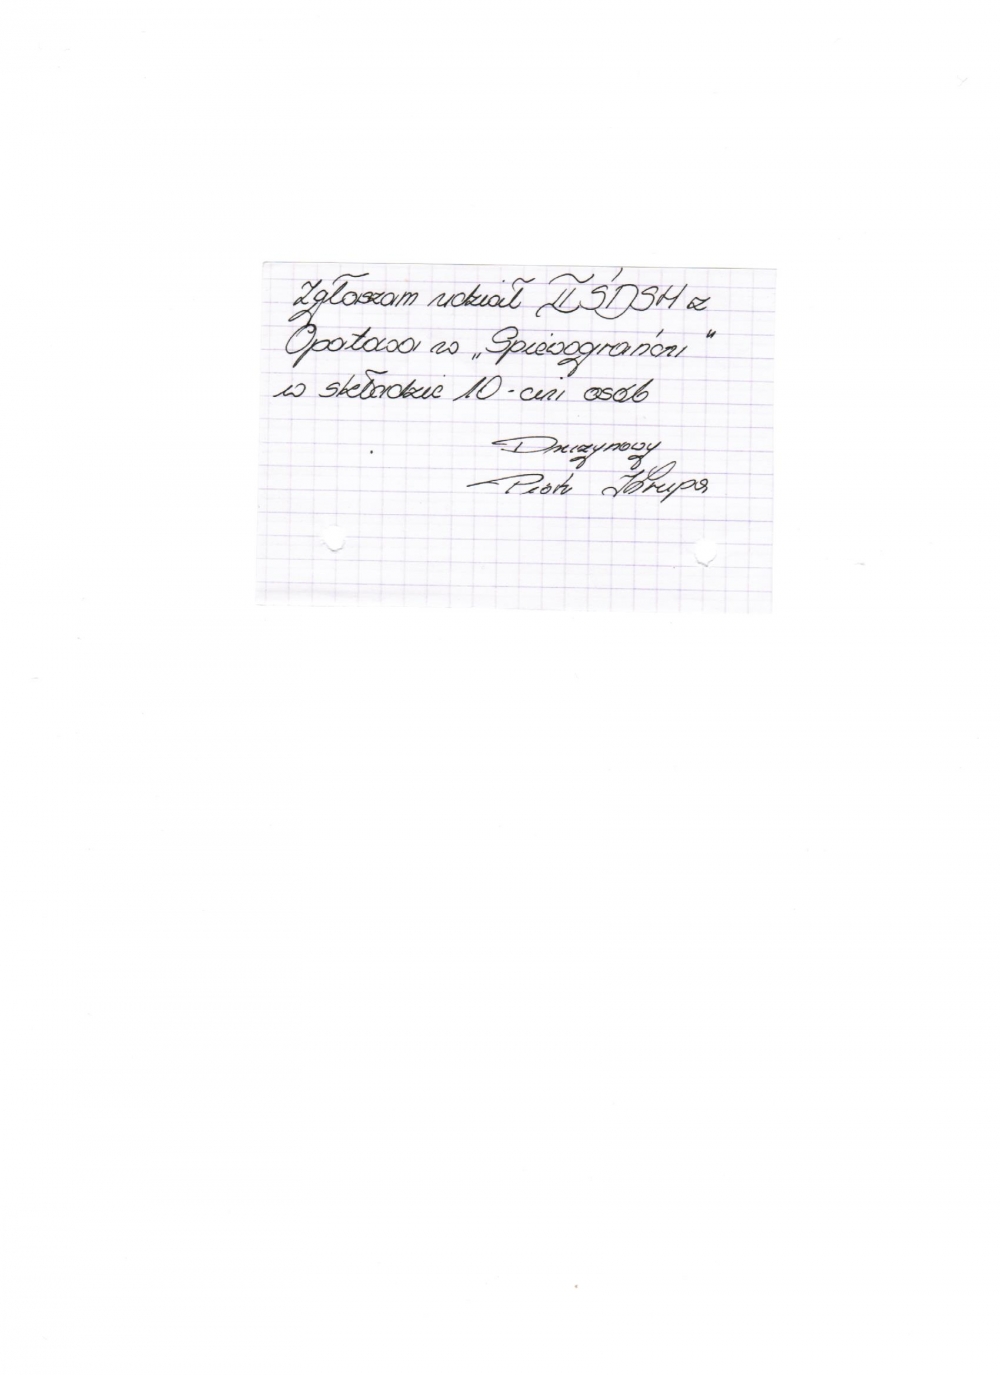 Zgłaszam udział II ŚDSH z
Opatowa w „Śpiewogrаniu"
w składzie 10-ciu osób
Drużynowy
Piotr Krupa